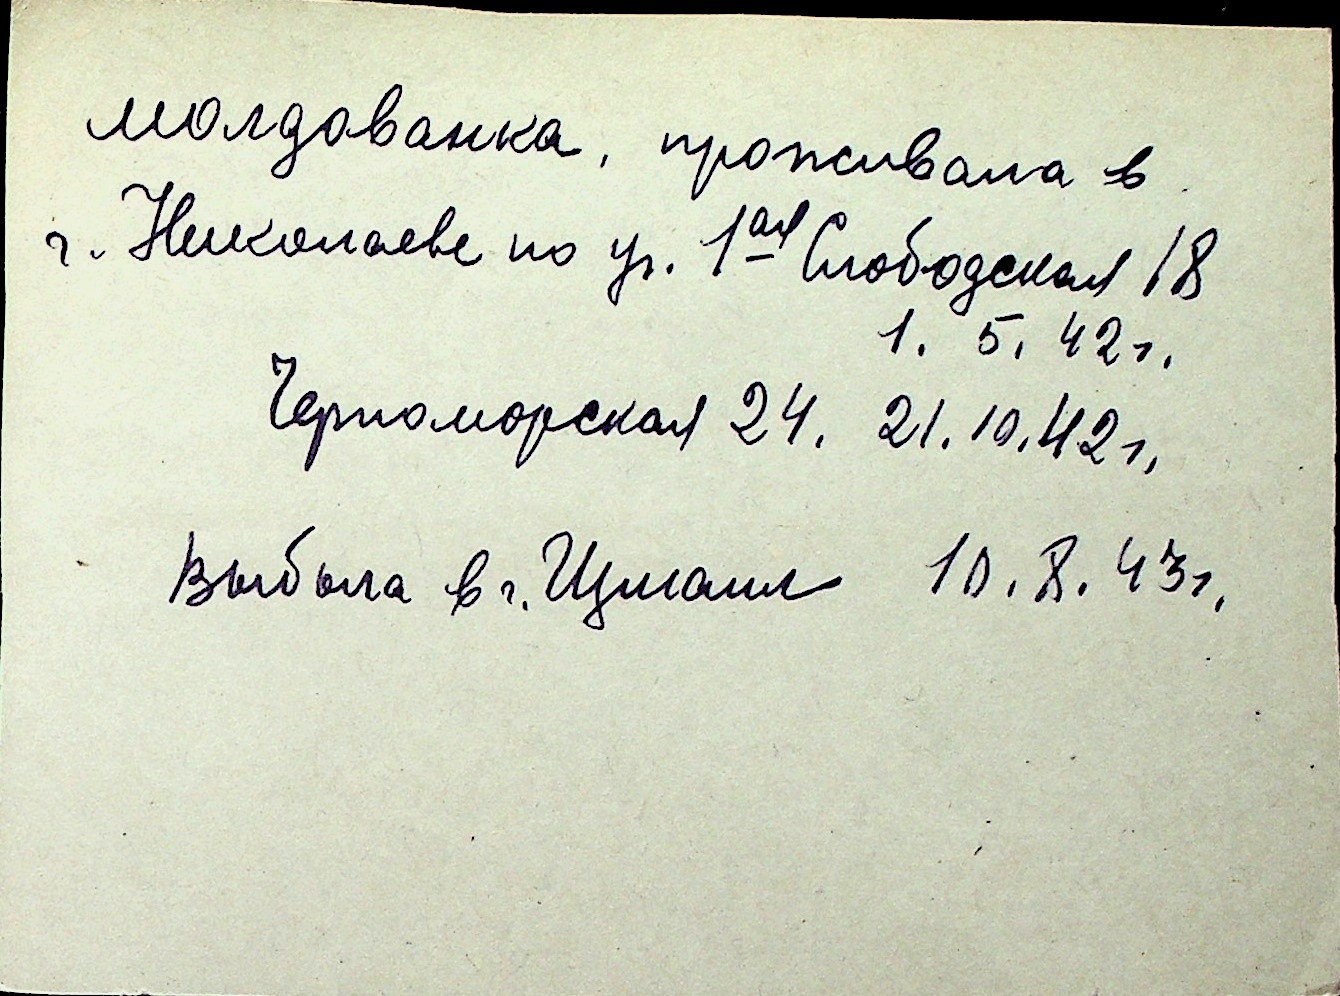 молдованка, проживала в
г. Николаеве по ул. 1ая Слободская 18
1. 5. 42г.
Черноморская 24. 21.10.42г.
Выбыла в г. Измаил 10.8.43г.